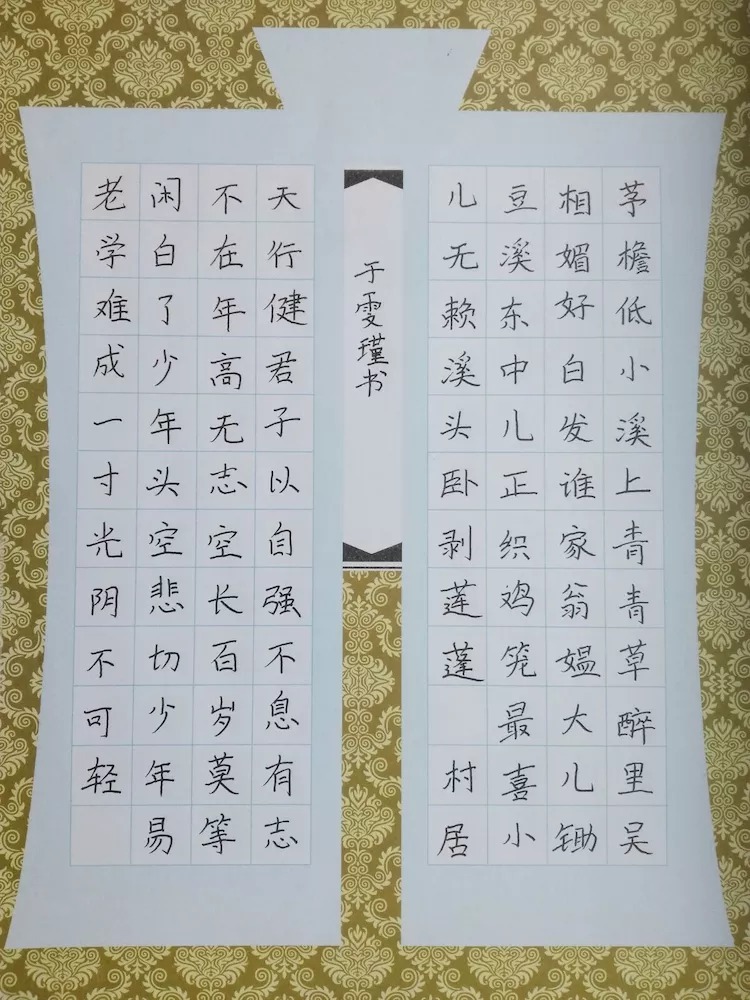 茅檐低小溪上青青草醉里吴
相媚好白发谁家翁媪大儿锄
豆溪东中儿正织鸡笼最喜小
儿无赖溪头卧剥莲蓬 村居
于雯瑾书
天行健君子以自强不息有志
不在年高无志空长百岁莫等
闲白了少年头空悲切少年易
老学难成一寸光阴不可轻